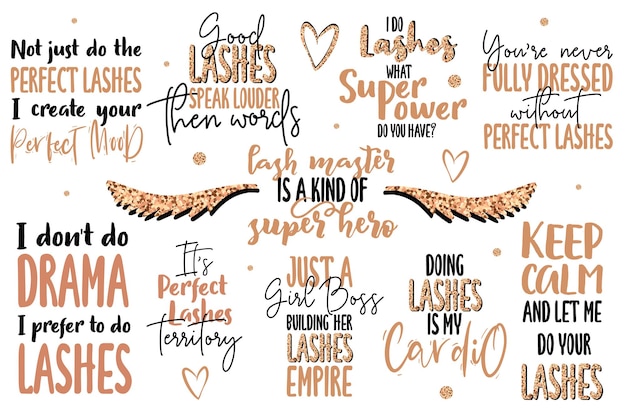 Not just do the
PERFECT LASHES
I create your
Perfect Mood
Good
LASHES
SPEAK LOUDER
Then words
I DO
Lashes
WHAT
Super
Power
DO YOU HAVE?
You're never
FULLY DRESSED
without
PERFECT LASHES
lash master
IS A KIND OF
super hero
I don't do
DRAMA
I prefer to do
LASHES
It's
Perfect
Lashes
territory
JUST A
Girl Boss
BUILDING HER
LASHES
EMPIRE
DOING
LASHES
IS MY
Cardio
KEEP
CALM
AND LET ME
DO YOUR
LASHES